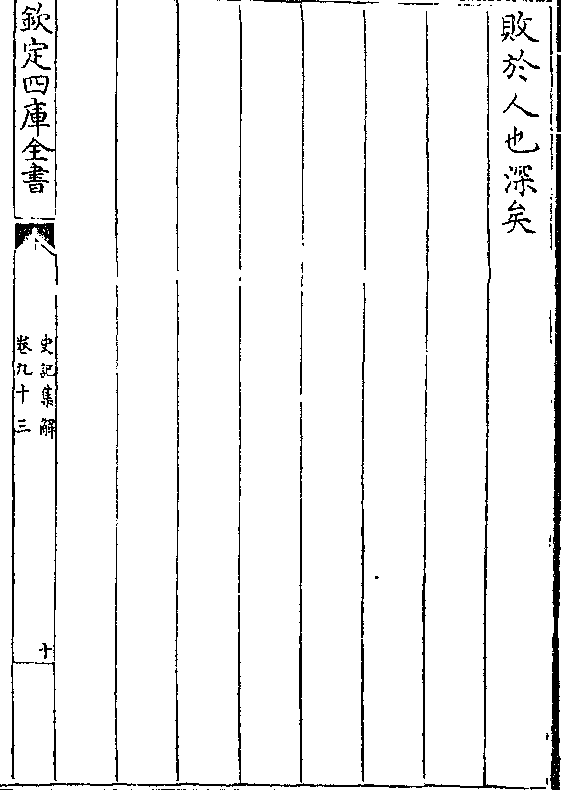 敗於人也深矣
欽定四庫全書
史記集解
卷九十三
十